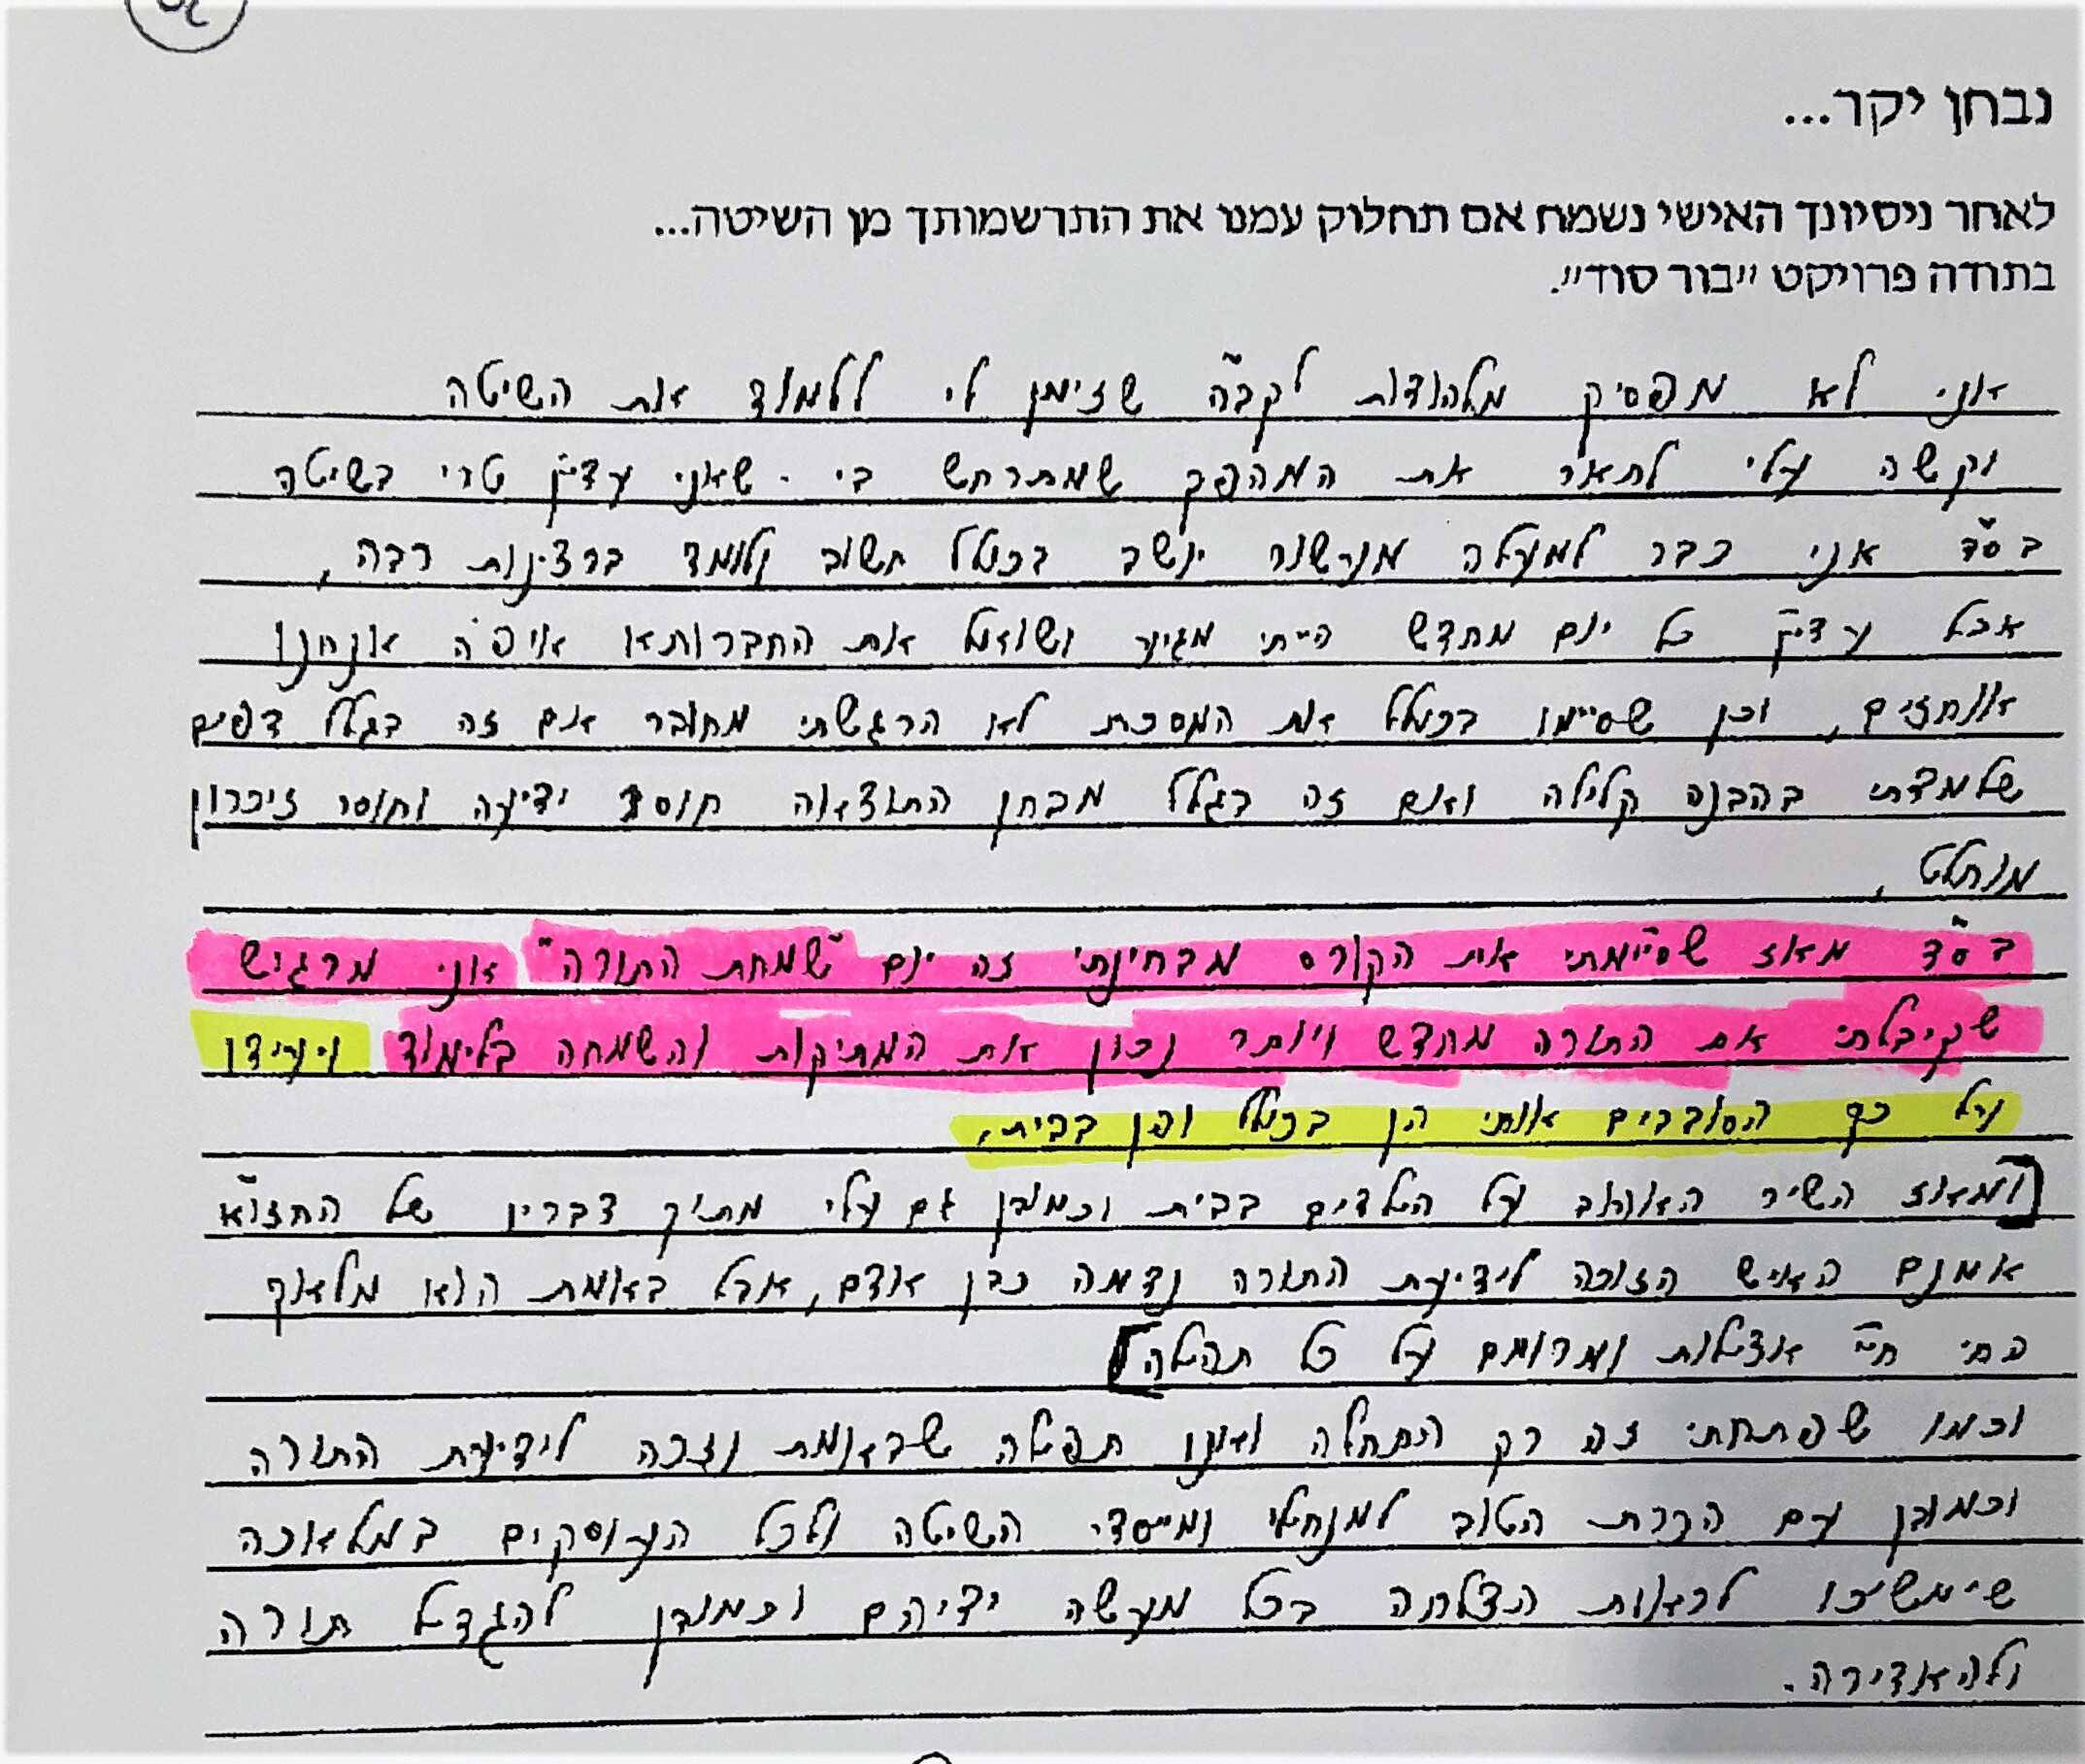 נבחן יקר...
לאחר ניסיונך האישי נשמח אם תחלוק עמנו את התרשמותך מן השיטה...
בתודה פרויקט ״בור סוד״.
אני לא מפסיק מלהודות לקב״ה שזימן לי ללמוד את השיטה
וקשה עלי לתאר את המהפך שמתרחש בי - שאני עדיין טרי בשיטה
בס״ד אני כבר למעלה מעשור יושב בכולל חשוב ולומד ברצינות רבה,
אבל עדיין כל יום מחדש הייתי מגיע ושואל את החברותא איפה אנחנו
אוחזים, וכן שסיימו בכולל את המסכת לא הרגשתי מחובר אם זה בגלל דפים
שלמדתי בהבנה קלילה ואם זה בגלל מבחן התוצאה חוסר ידיעה וחוסר זיכרון
מוחלט,
בס״ד מאז שסיימתי את הקורס מבחינתי זה יום "שמחת התורה" אני מרגיש
שקיבלתי את התורה מחדש ויותר נכון את המתיקות והשמחה בלימוד ויעידו
על כך הסובבים אותי הן בכולל והן בבית,
[ומאז השיר האהוב על הילדים בבית וכמובן גם עלי מתוך דבריו של החזו״א
אמנם האיש הזוכה לידיעת התורה נדמה כבן אדם, אבל באמת הוא מלאך
החי חיי אצילות ומרומם על כל תהילה]
וכמו שפתחתי זה רק התחלה ואנו תפילה שבאמת נזכה לידיעת התורה
וכמובן עם הכרת הטוב למנהלי ומייסדי השיטה ולכל העוסקים במלאכה
שימשיכו לראות הצלחה בכל מעשה ידיהם וכמובן להגדיל תורה
ולהאדירה.